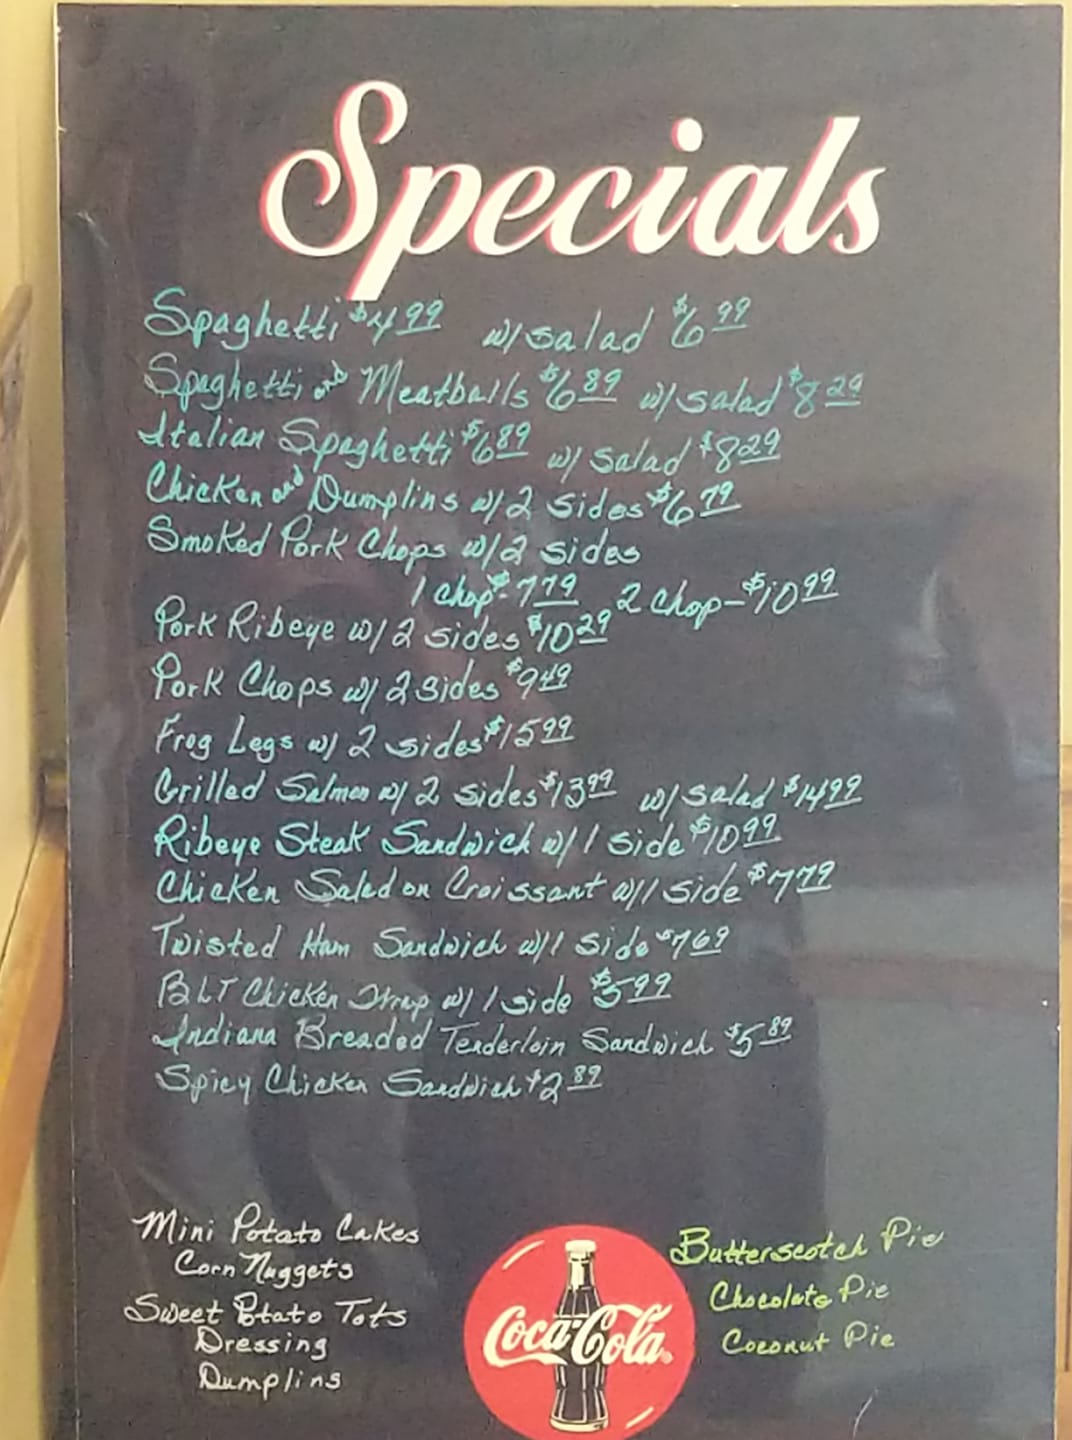 Specials
Spaghetti $4.99 w/salad $6.99
Spaghetti and Meatballs $6.89 w/salad $8.29
Italian Spaghetti $6.89 w/ salad $8.29
Chicken and Dumplins w/2 sides $6.79
Smoked Pork Chops w/2 sides
1 chop-$7.79 2 chop-$10.99
Pork Ribeye w/2 sides $10.29
Pork Chops w/ 2 sides $9.49
Frog Legs w/ 2 sides $15.99
Grilled Salmon w/ 2 sides $13.99 w/salad $14.99
Ribeye Steak Sandwich w/1 side $10.99
Chicken Salad on Croissant w/1 side $7.79
Twisted Ham Sandwich w/1 side $7.69
BLT Chicken Wrap w/ 1 side $5.99
Indiana Breaded Tenderloin Sandwich $5.89
Spicy Chicken Sandwich $2.89
Mini Potato Cakes
Corn Nuggets
Sweet Potato Tots
Dressing
Dumplins
Coca-Cola®
Butterscotch Pie
Chocolate Pie
Coconut Pie